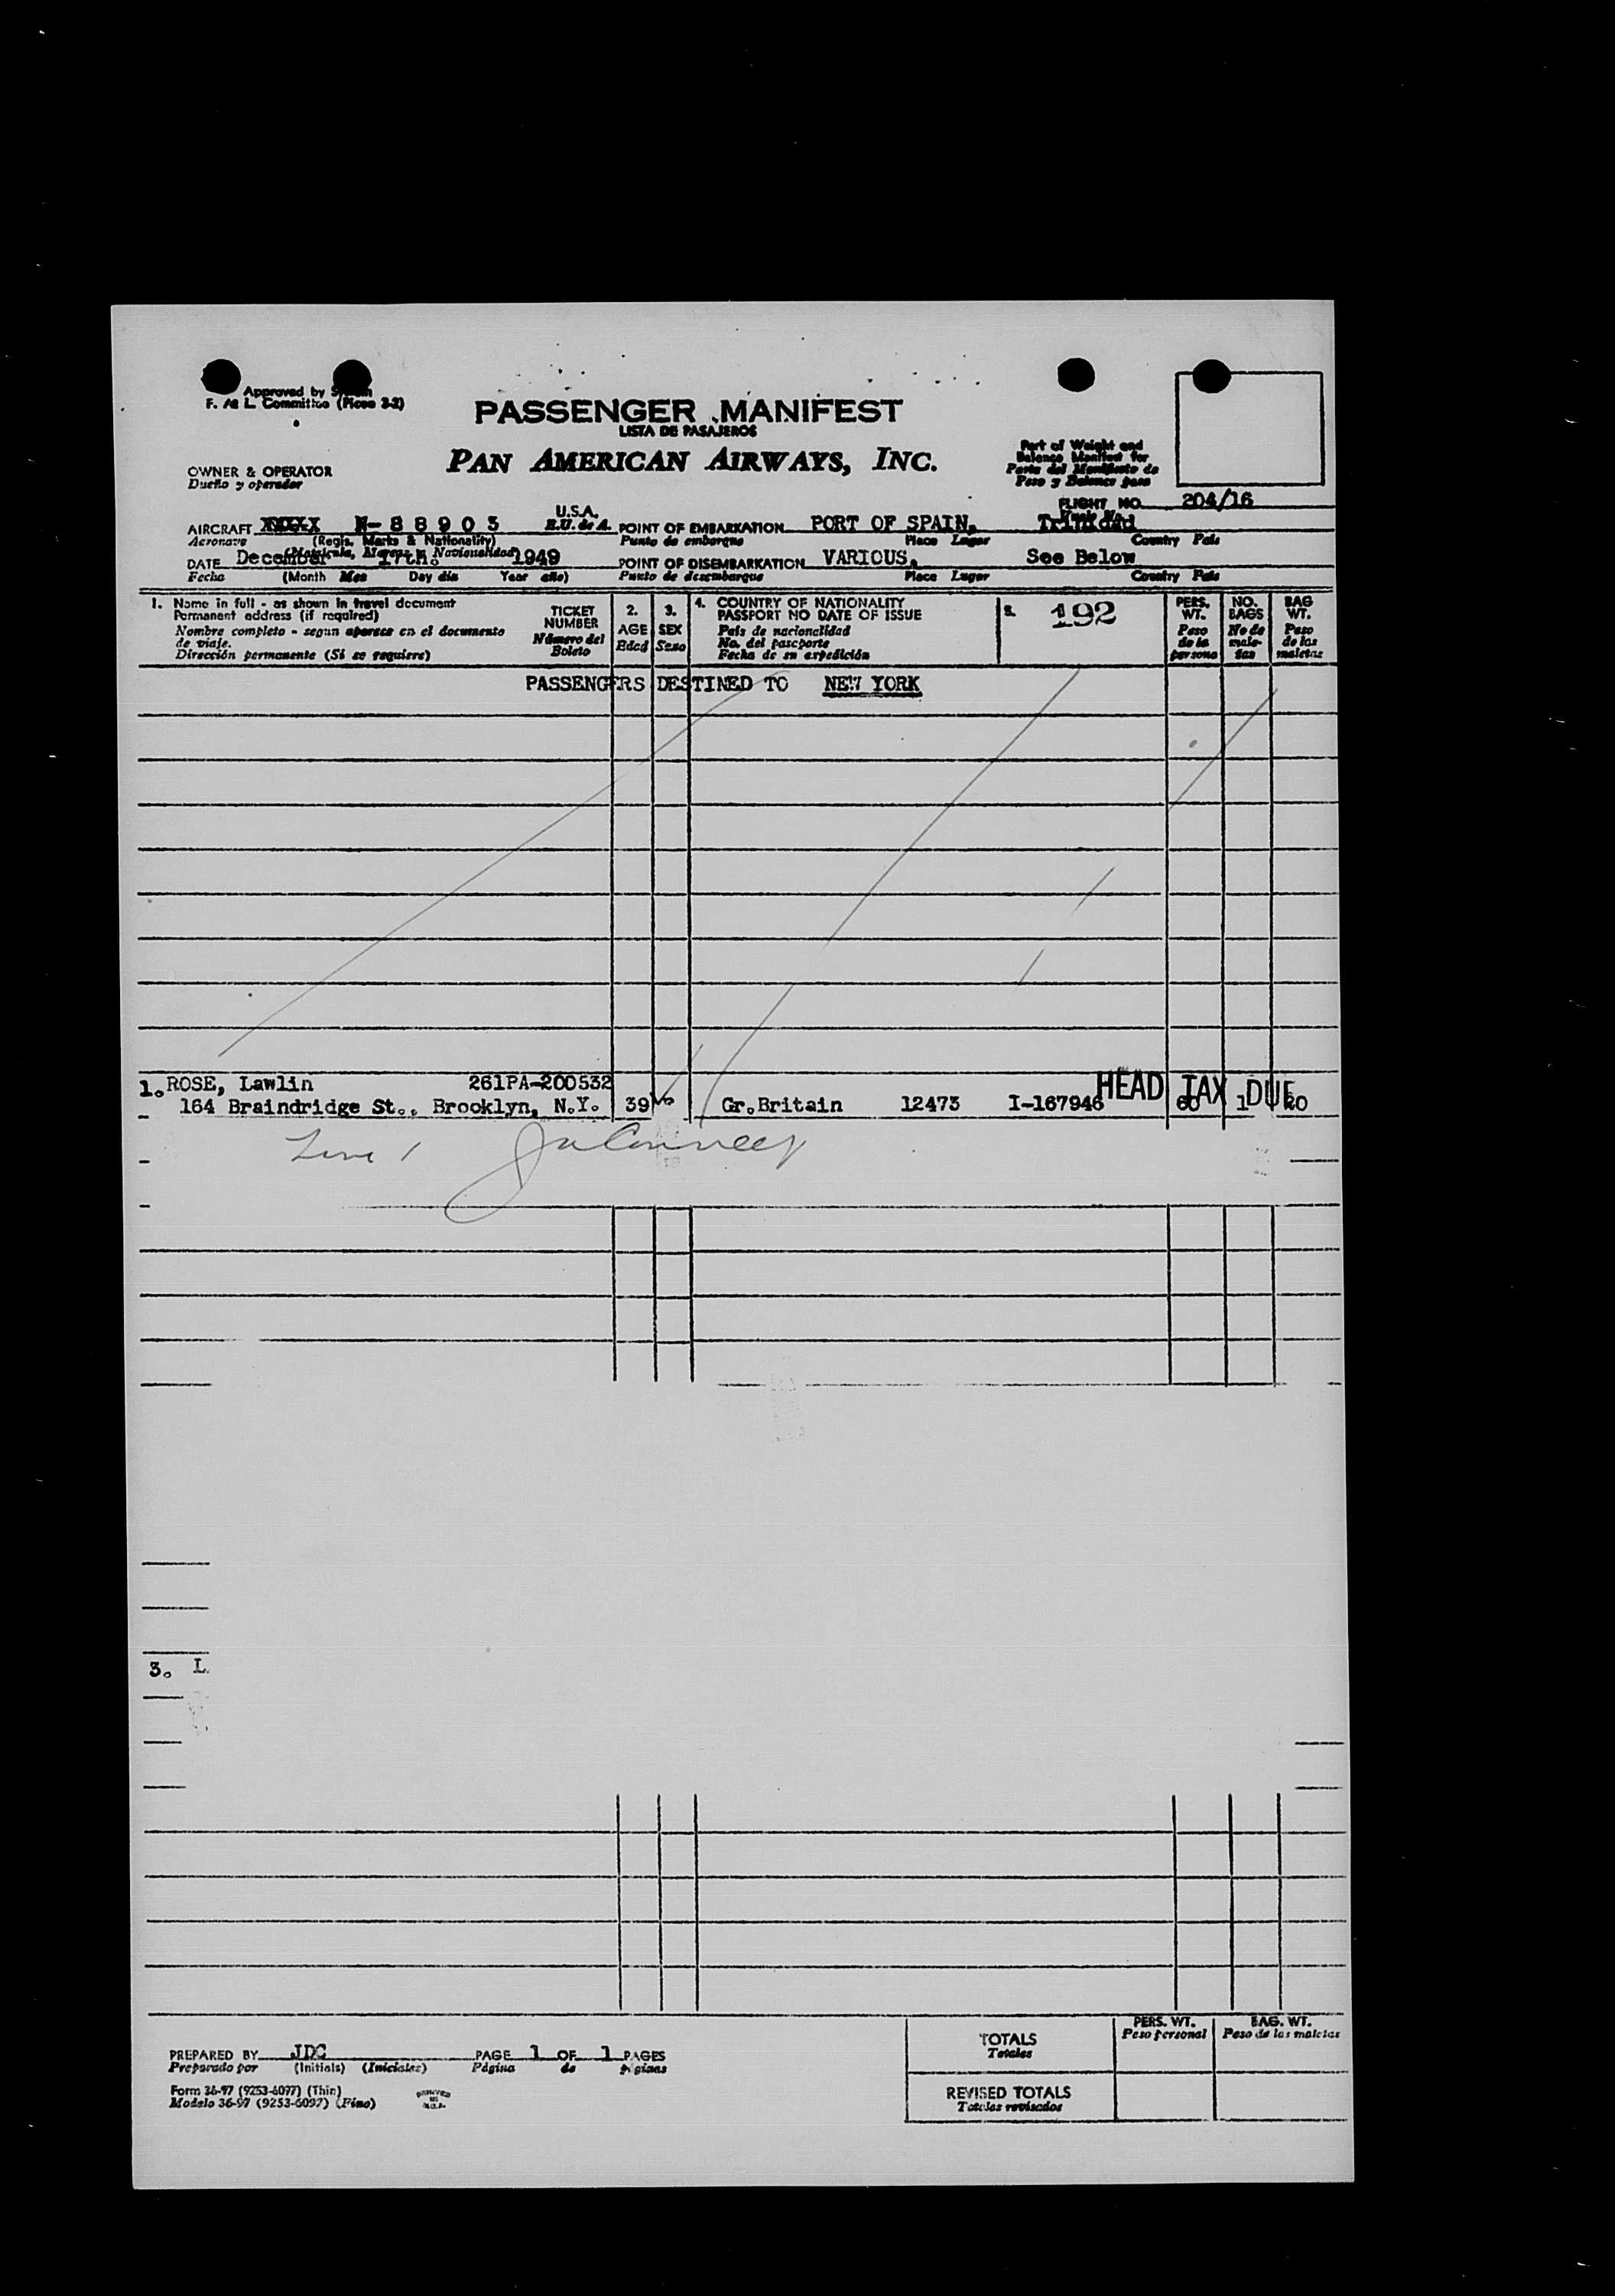 Approved by System
F. & L. Committee (Picao 3-2)
PASSENGER MANIFEST
LISTA DE PASAJEROS
PAN AMERICAN AIRWAYS, INC.
Part of Weight and
Balance Manifest for
Parte del Manifiesto de
Peso y Balance para
OWNER & OPERATOR
Dueño y operador
FLIGHT NO. 204/16
AIRCRAFT XXXXX N-88903 U.S.A. E.U. de A. POINT OF EMBARKATION PORT OF SPAIN, Trinidad
Aeronave (Regis. Marks & Nationality) Punto de embarque Place Lugar Country País
(Matrícula, Marcas y Nacionalidad)
DATE December 17th. 1949 POINT OF DISEMBARKATION VARIOUS, See Below
Fecha (Month Mes Day día Year año) Punto de desembarque Place Lugar Country País
1. Name in full - as shown in travel document
Permanent address (if required)
Nombre completo - segun aparece en el documento
de viaje.
Dirección permanente (Si se requiere)
TICKET
NUMBER
Número del
Boleto
2.
AGE
Edad
3.
SEX
Sexo
4. COUNTRY OF NATIONALITY
PASSPORT NO DATE OF ISSUE
País de nacionalidad
No. del pasaporte
Fecha de su expedición
5. 192
PERS.
WT.
Peso
de la
persona
NO.
BAGS
No de
male-
tas
BAG
WT.
Peso
de las
maletas
PASSENGERS DESTINED TO NEW YORK
1. ROSE, Lawlin 261PA-200532 HEAD TAX DUE
164 Braindridge St., Brooklyn, N.Y. 39 Gr.Britain 12473 I-167946 60 1 20
Line 1
3. L
PREPARED BY JDC PAGE 1 OF 1 PAGES
Preparado por (Initials) (Iniciales) Página de páginas
Form 36-97 (9253-6097) (Thin)
Modelo 36-97 (9253-6097) (Fino)
PRINTED
IN
U.S.A.
PERS. WT.
Peso personal
BAG. WT.
Peso de las maletas
TOTALS
Totales
REVISED TOTALS
Totales revisados